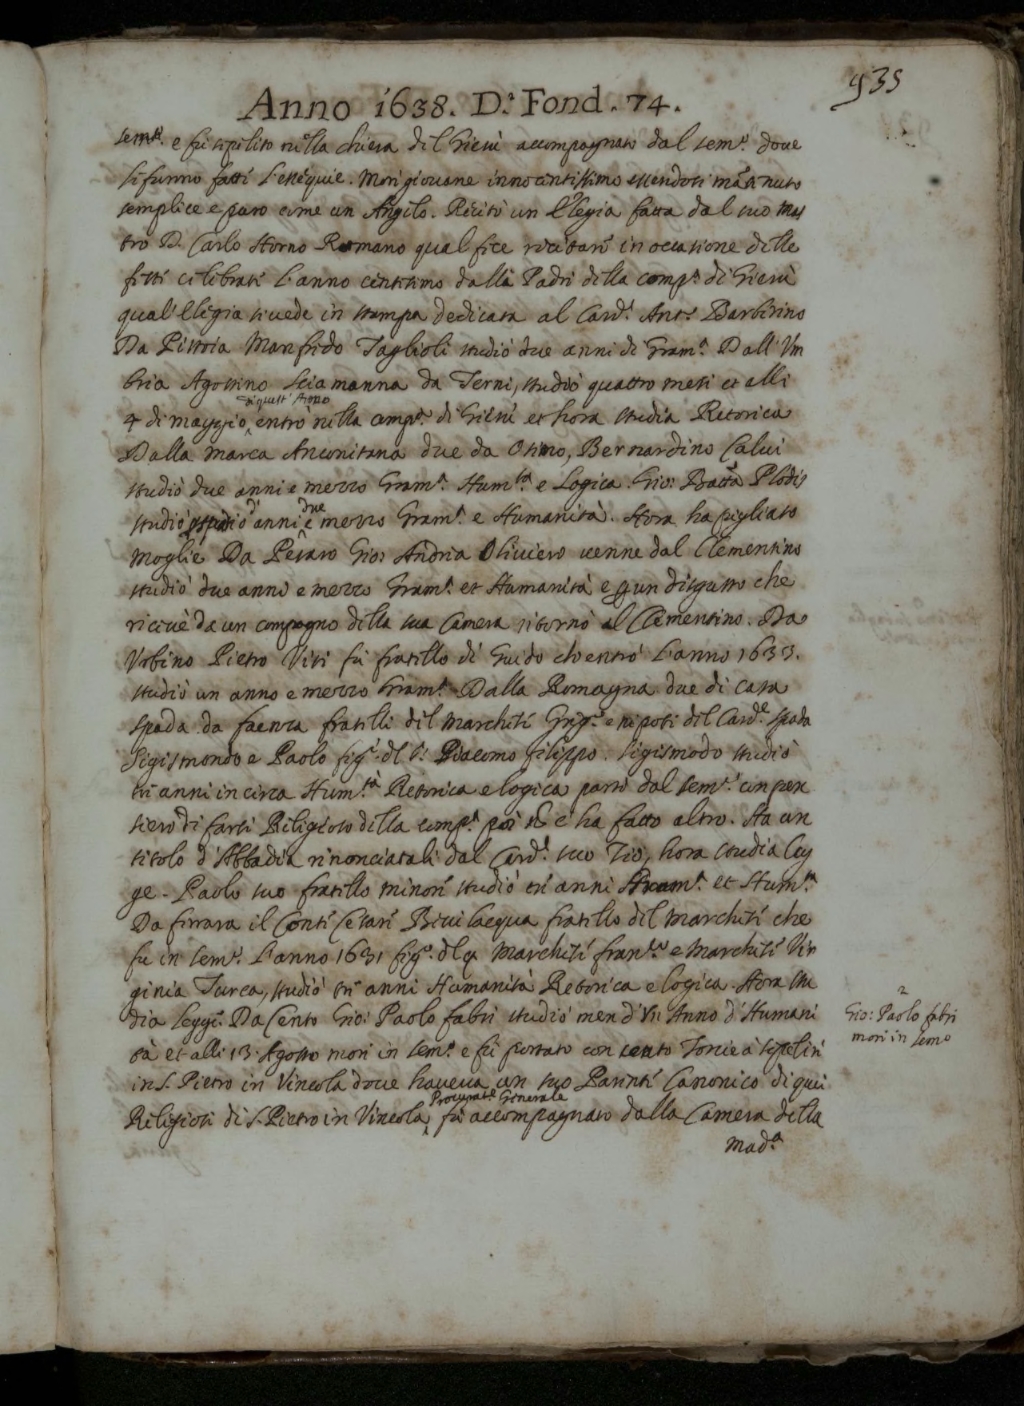 935
Anno 1638. D.ª Fond. 74.
sem.º e fù sepelito nella chiesa del Giesù accompagnato dal sem.º doue
si furno fatti l'essequie. Morì giouane innocentissimo essendosi mãtenuto
semplice e puro come un Angelo. Recitò un Elegia fatta dal suo mas
tro D. Carlo Horno Romano qual fece recitare in occasione delle
feste celebrate l'anno centesimo dalli Padri della comp.ª di Giesù
qual'Elegia si uede in stampa dedicata al Card.l Ant.º Barberino
Da Pistoia Manfredo Taglioli studiò due anni di Gram.ª Dall'Vm
bria Agostino Sciamanna da Terni, studiò quattro mesi et alli
di quest'Anno
4 di maggio, entrò nella comp.ª di Giesù et hora studia Retorica
Dalla Marca Anconitana due da Osimo, Bernardino Calui
studiò due anni e mezzo Gram.ª Hum.tà e Logica. Gio: Batta Plodis
studiò anni due e mezzo Gram.ª e Humanità. Hora ha pigliato
moglie Da Pesaro Gio: Andrea Oliuiero uenne dal Clementino
studiò due anni e mezzo Gram.ª et Humanità e p un disgusto che
riceuè da un compagno della sua Camera ritornò al Clementino. Da
Vrbino Pietro Viti fù fratello di Guido ch'entrò l'anno 1633.
studiò un anno e mezzo Gram.ª Dalla Romagna due di casa
spada da faenza fratelli del marchese Greg.º e nepoti del Card.le spada
Sigismondo e Paolo fig.i del S.r Giacomo filippo. Sigismõdo studiò
tre anni in circa Hum.tà Retorica e logica partì dal sem.º con pen
siero di farsi Religioso della comp.ª poi nõ è ha fatto altro. Ha un
titolo d'Abbadia rinonciatali dal Card.l suo Zio, hora studia leg
ge. Paolo suo fratello minore studiò tre anni Gram.ª et Hum.tà
Da ferrara il Conte Cesare Beuilacqua fratello del marchese che
fu in sem.º l'anno 1631 fig.º del q. Marchese fran.co e Marchese Vir
ginia Turca, studiò tre anni Humanità Retorica e logica. Hora stu
dia legge. Da Cento Gio: Paolo fabri studiò men d'un Anno d'Humani
tà et alli 13 Agosto morì in sem.º e fù portato con cento Torcie à sepelire
in S. Pietro in Vincola doue haueua un suo Parente Canonico di quei
Procurat.e Generale
Religiosi di S. Pietro in Vincola, fù accompagnato dalla Camera della
Mad.ª
Gio: Paolo fabri
morì in semo